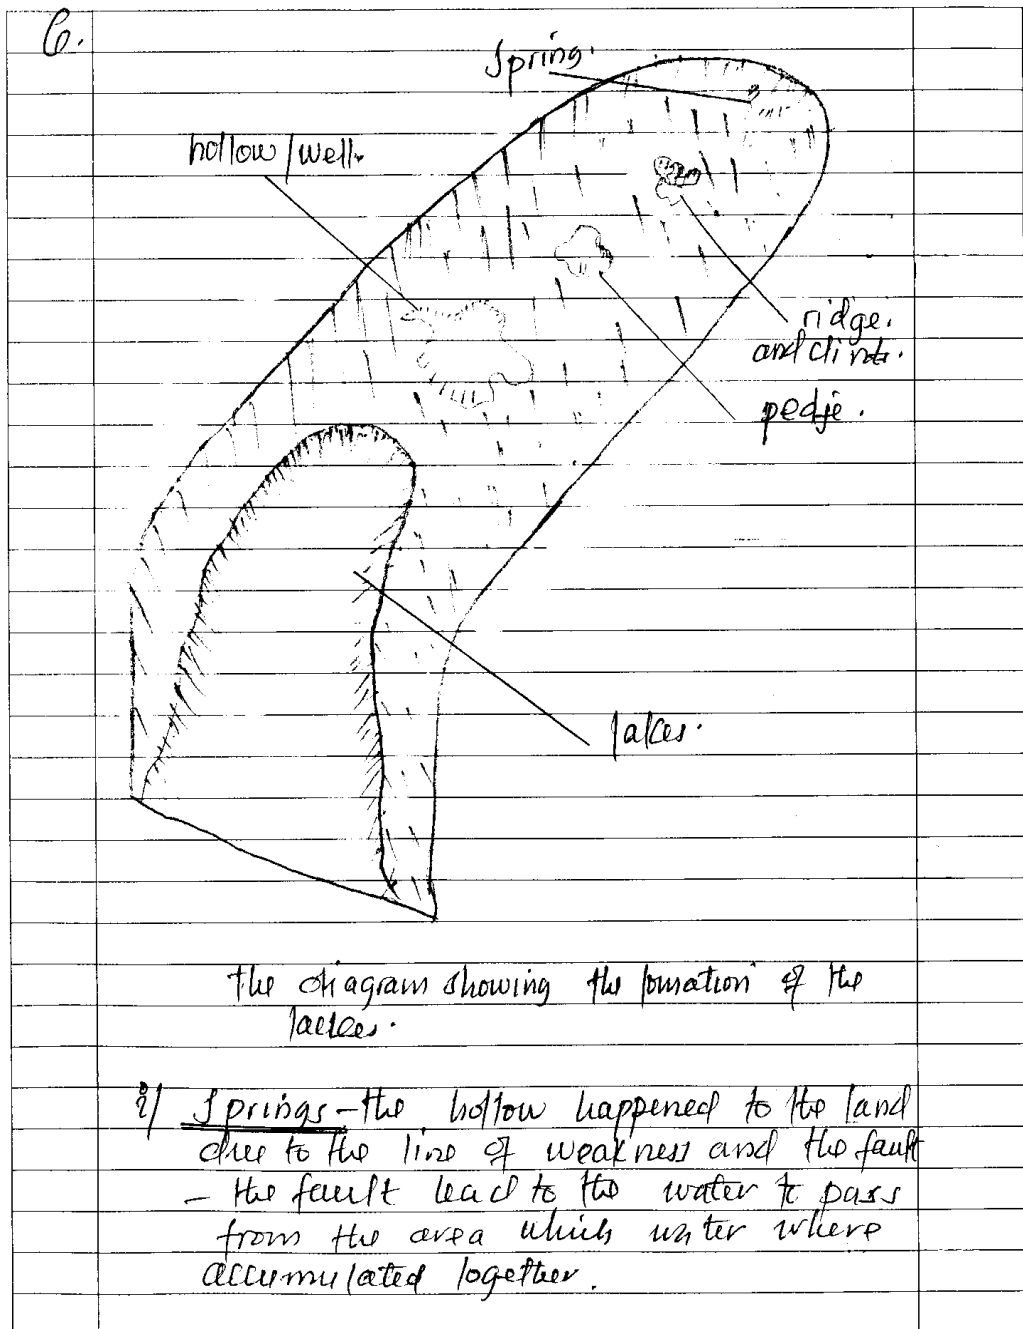 6.
Spring.
hollow/well.
ridge.
and clints.
pedje.
lakes.
the diagram showing the formation of the
lackes.
i/ Springs - the hollow happened to the land
due to the line of weakness and the fault
- the fault lead to the water to pass
from the area which water where
accumulated together.